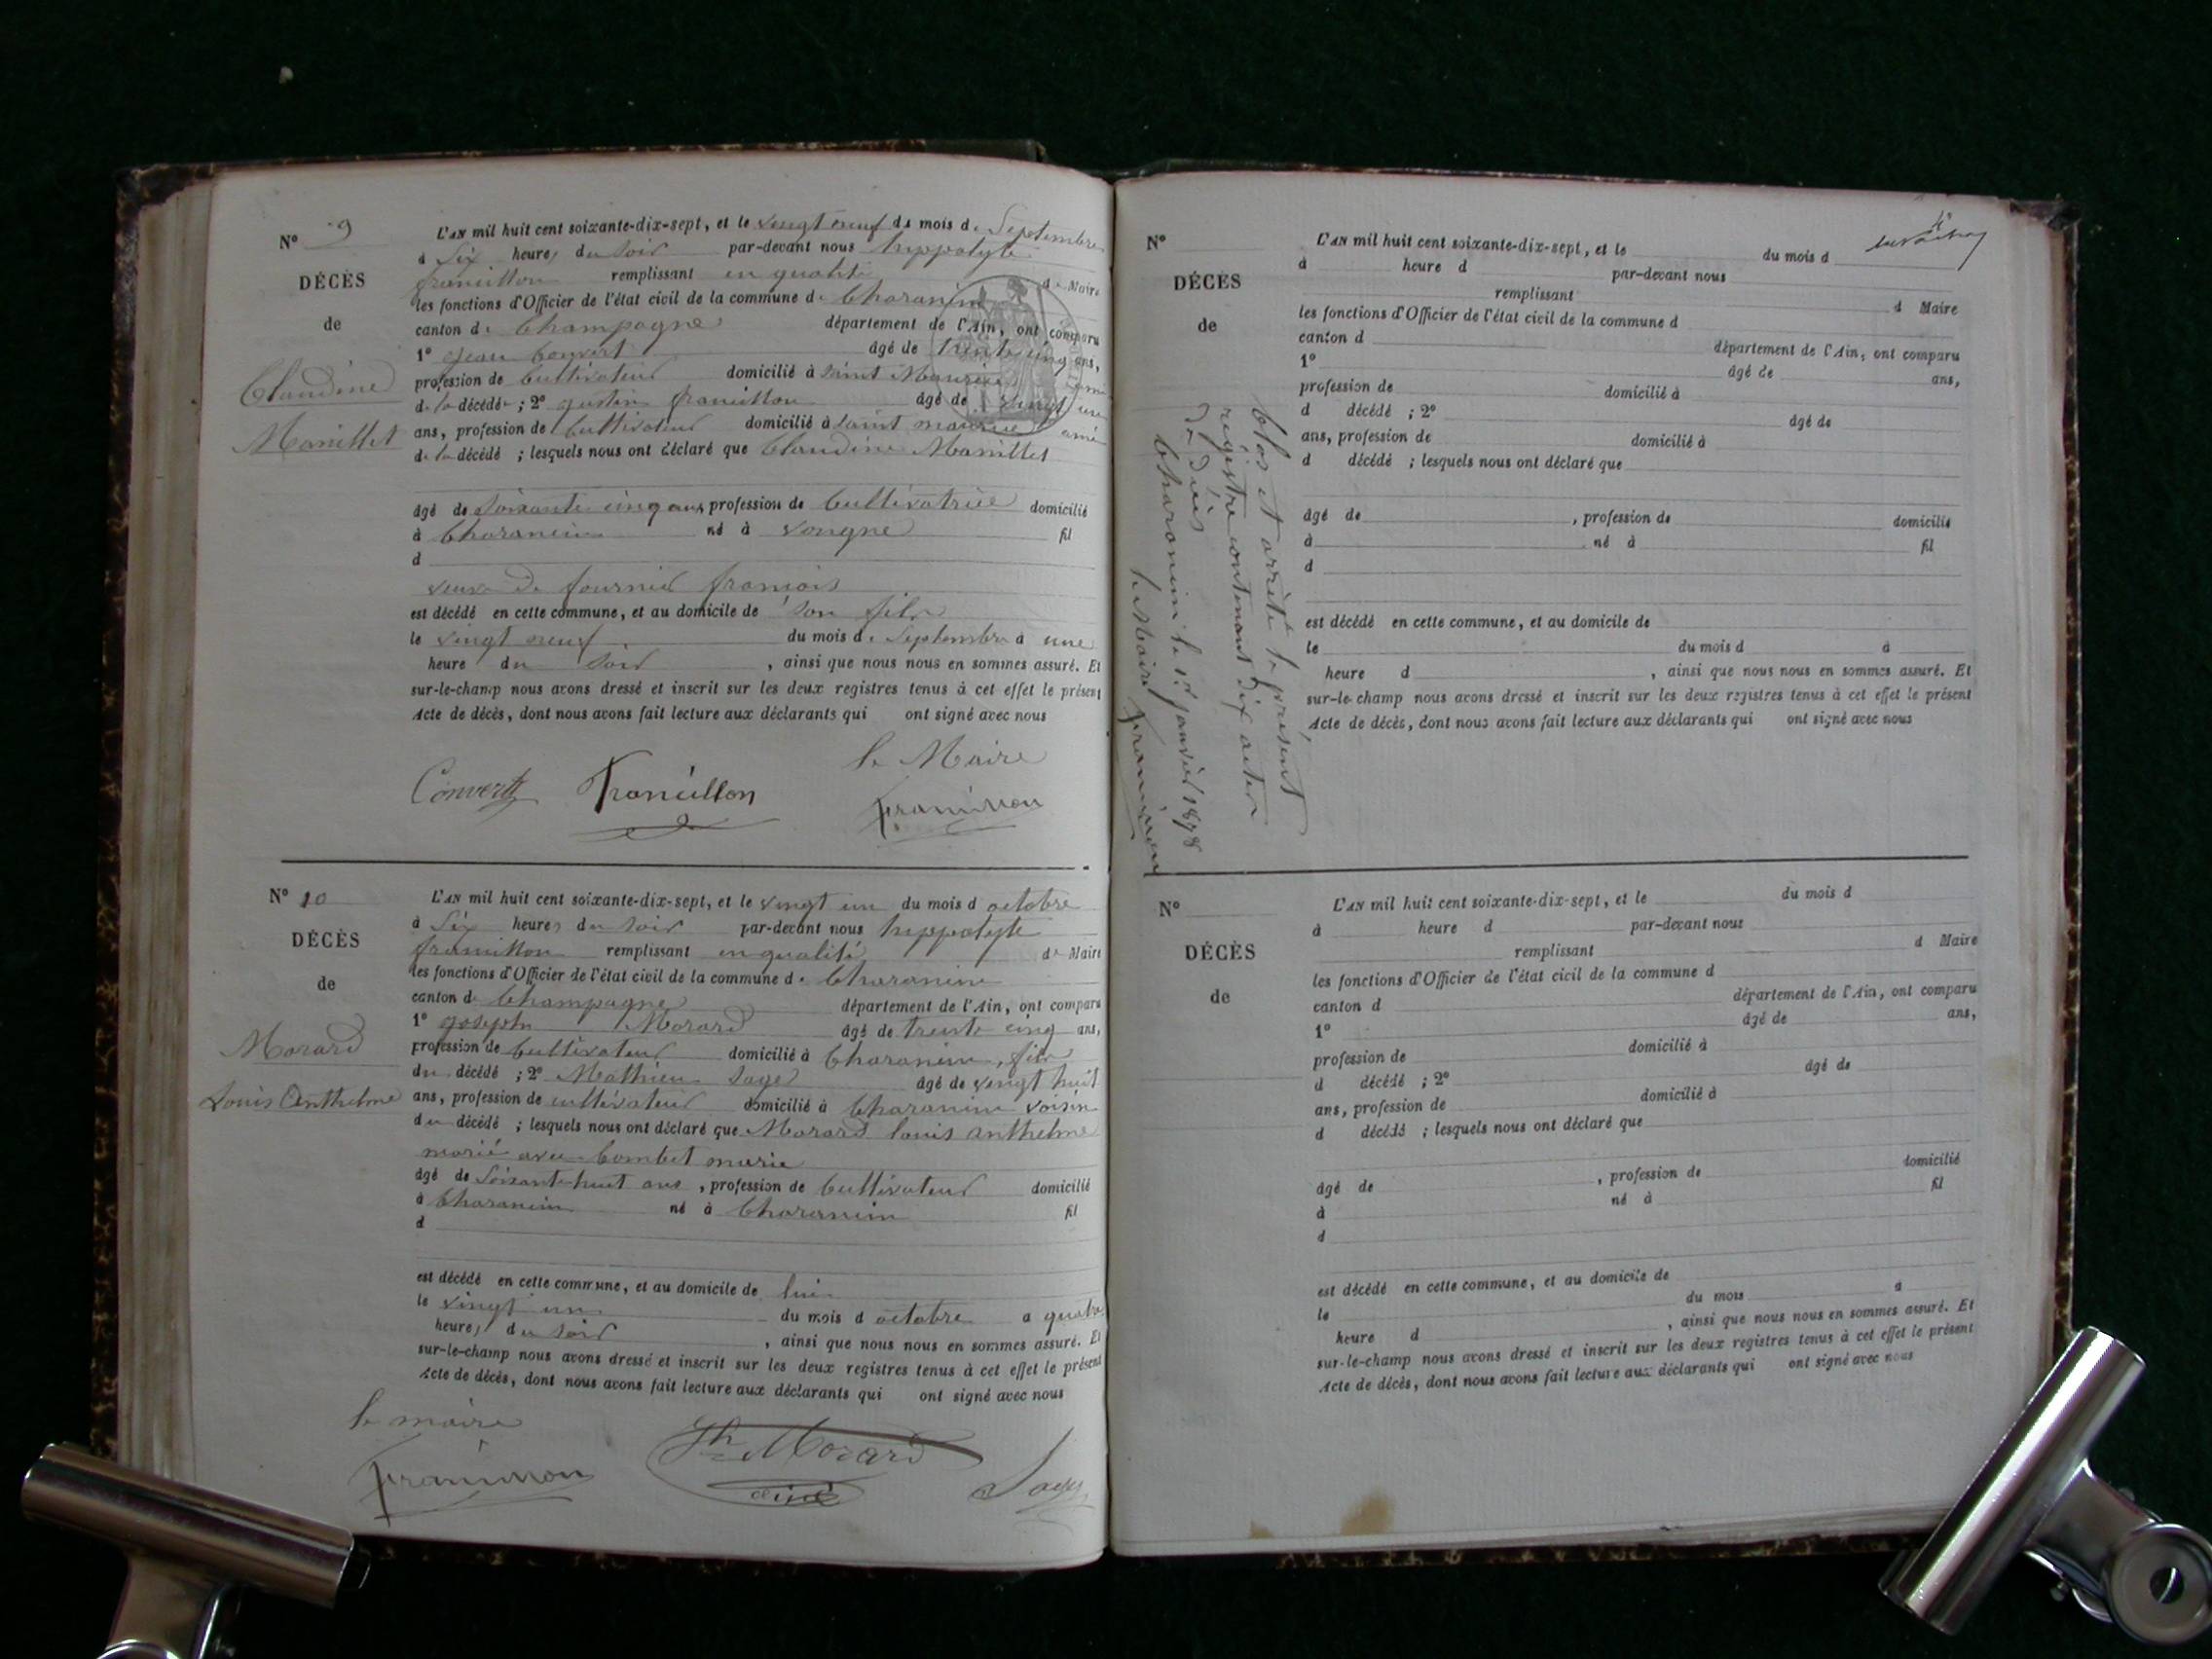 N° 9
DÉCÈS
de
Claudine
Manillet
L'AN mil huit cent soixante-dix-sept, et le vingt neuf du mois de Septembre
à Six heures du soir par-devant nous hyppolyte
francillon remplissant en qualité de Maire
les fonctions d'Officier de l'état civil de la commune de Charancin
canton de Champagne département de l'Ain, ont comparu
1° Jean Convert âgé de trente cinq ans,
profession de Cultivateur domicilié à saint Maurice ami
de la décédée ; 2° francillon âgé de vingt un
ans, profession de Cultivateur domicilié à saint maurice ami
de la décédé ; lesquels nous ont déclaré que Claudine Manillet
âgé de Soixante cinq ans, profession de Cultivatrice domicilié
à Charancin né à Songne fil
d
veuve de fournier francois
est décédé en cette commune, et au domicile de son fils
le vingt neuf du mois de Septembre à une
heure du soir , ainsi que nous nous en sommes assuré. Et
sur-le-champ nous avons dressé et inscrit sur les deux registres tenus à cet effet le présent
Acte de décès, dont nous avons fait lecture aux déclarants qui ont signé avec nous
le Maire
Convert Francillon francillon
N° 10
DÉCÈS
de
Morard
Louis Anthelme
L'AN mil huit cent soixante-dix-sept, et le vingt un du mois d octobre
à Six heures du soir par-devant nous hyppolyte
francillon remplissant en qualité de Maire
les fonctions d'Officier de l'état civil de la commune de Charancin
canton de Champagne département de l'Ain, ont comparu
1° joseph Morard âgé de trente cinq ans,
profession de Cultivateur domicilié à Charancin, fils
du décédé ; 2° Mathieu Sage âgé de vingt huit
ans, profession de cultivateur domicilié à Charancin voisin
du décédé ; lesquels nous ont déclaré que Morard louis anthelme
marié avec Combet marie
âgé de Soixante-huit ans , profession de Cultivateur domicilié
à Charancin né à Charancin fil
d
est décédé en cette commune, et au domicile de lui
le vingt un du mois d octobre a quatre
heures du soir , ainsi que nous nous en sommes assuré. Et
sur-le-champ nous avons dressé et inscrit sur les deux registres tenus à cet effet le présent
Acte de décès, dont nous avons fait lecture aux déclarants qui ont signé avec nous
le maire
francillon Jh Morard Sage
N°
DÉCÈS
de
L'AN mil huit cent soixante-dix-sept, et le du mois d
à heure d par-devant nous
remplissant d Maire
les fonctions d'Officier de l'état civil de la commune d
canton d département de l'Ain, ont comparu
1° âgé de ans,
profession de domicilié à
d décédé ; 2° âgé de
ans, profession de domicilié à
d décédé ; lesquels nous ont déclaré que
âgé de , profession de domicilié
à né à fil
d
est décédé en cette commune, et au domicile de
le du mois d à
heure d , ainsi que nous nous en sommes assuré. Et
sur-le-champ nous avons dressé et inscrit sur les deux registres tenus à cet effet le présent
Acte de décès, dont nous avons fait lecture aux déclarants qui ont signé avec nous
Clos et arrêté le présent
registre contenant dix actes
de décès
Charancin le 1er janvier 1878
le Maire francillon
N°
DÉCÈS
de
L'AN mil huit cent soixante-dix-sept, et le du mois d
à heure d par-devant nous
remplissant d Maire
les fonctions d'Officier de l'état civil de la commune d
canton d département de l'Ain, ont comparu
1° âgé de ans,
profession de domicilié à
d décédé ; 2° âgé de
ans, profession de domicilié à
d décédé ; lesquels nous ont déclaré que
âgé de , profession de domicilié
à né à fil
d
est décédé en cette commune, et au domicile de
le du mois à
heure d , ainsi que nous nous en sommes assuré. Et
sur-le-champ nous avons dressé et inscrit sur les deux registres tenus à cet effet le présent
Acte de décès, dont nous avons fait lecture aux déclarants qui ont signé avec nous